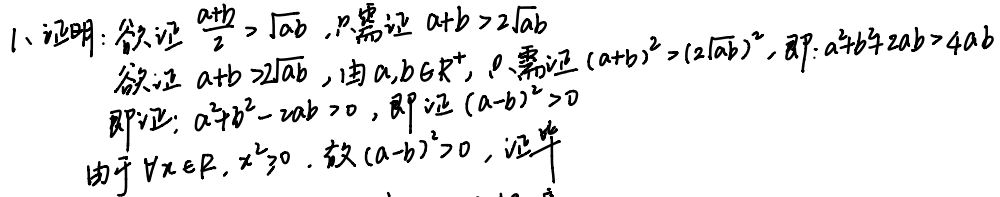 1、证明：欲证 (a+b)/2 > √ab ，只需证 a+b > 2√ab
欲证 a+b > 2√ab ，由 a,b∈R⁺，只需证 (a+b)² > (2√ab)²，即：a²+b²+2ab > 4ab
即证：a²+b²-2ab > 0 ，即证 (a-b)² > 0
由于 ∀x∈R, x²≥0 . 故 (a-b)² > 0 ，证毕